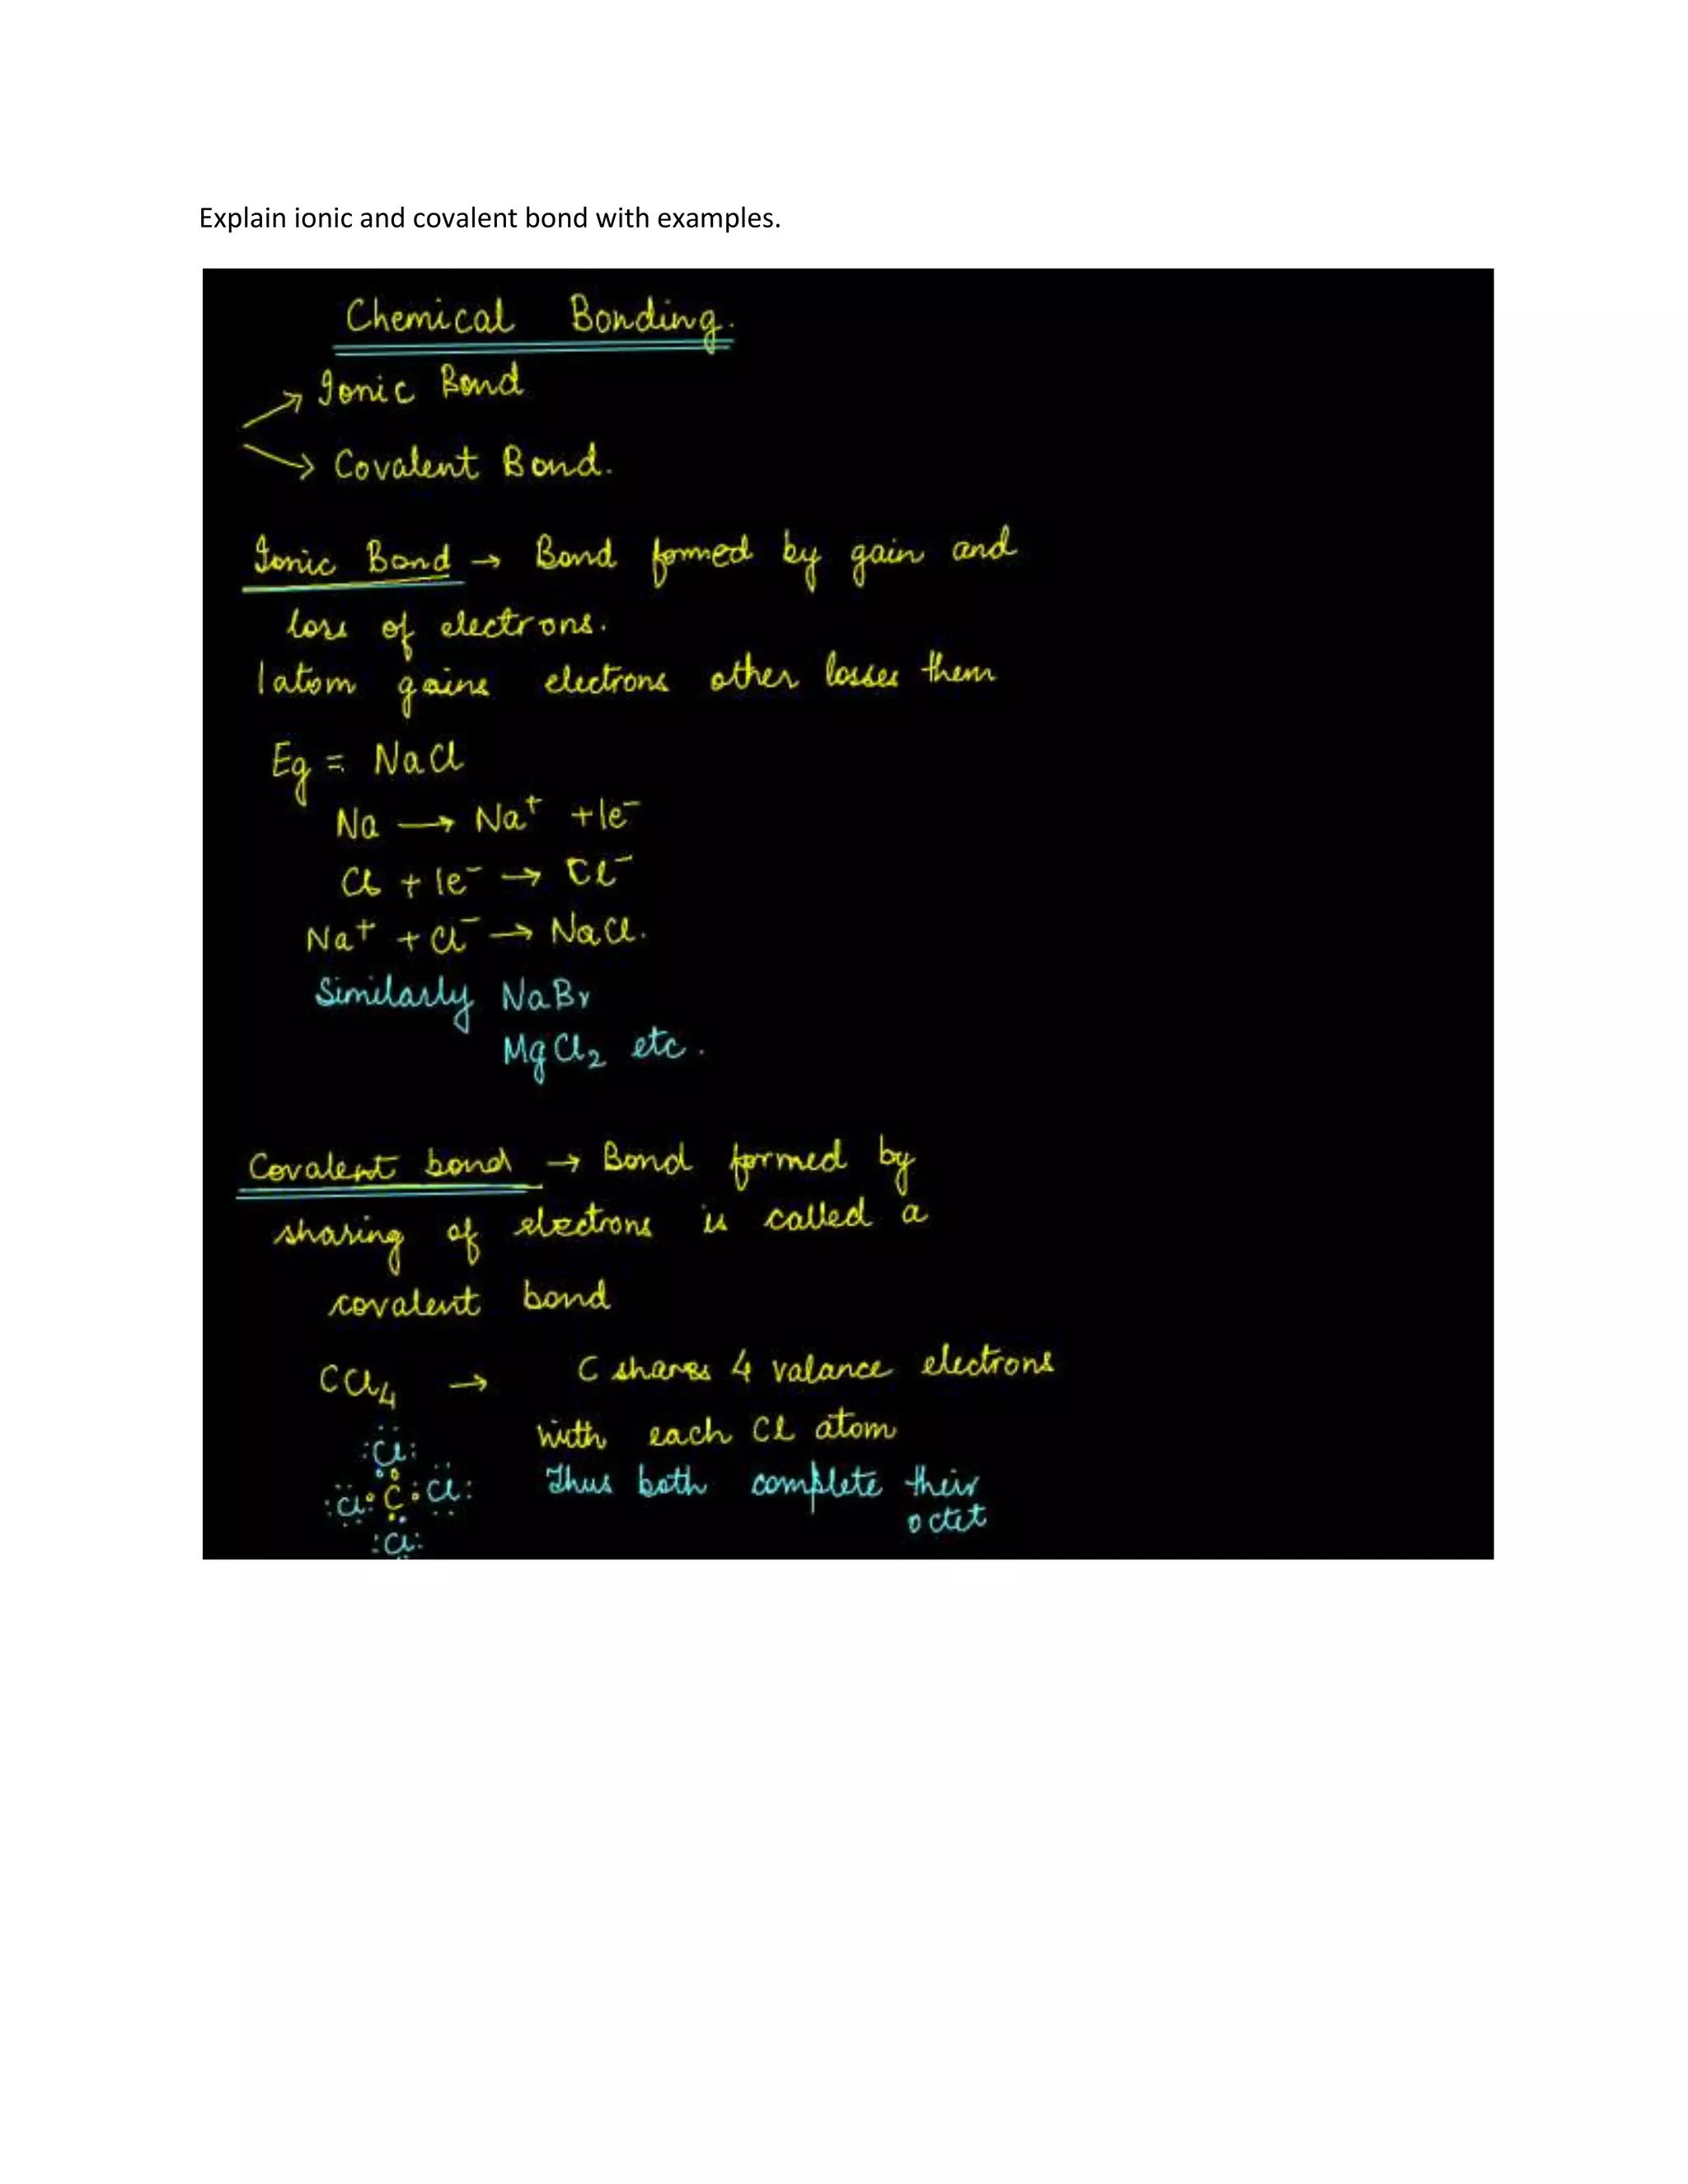 Explain ionic and covalent bond with examples.
Chemical Bonding.
Ionic Bond
Covalent Bond.
Ionic Bond → Bond formed by gain and
loss of electrons.
1 atom gains electrons other losses them
Eg = NaCl
Na → Na⁺ + 1e⁻
Cl + 1e⁻ → Cl⁻
Na⁺ + Cl⁻ → NaCl.
Similarly NaBr
MgCl₂ etc.
Covalent bond → Bond formed by
sharing of electrons is called a
covalent bond
CCl₄ → C shares 4 valance electrons
with each Cl atom
Thus both complete their
octet
Cl
Cl C Cl
Cl